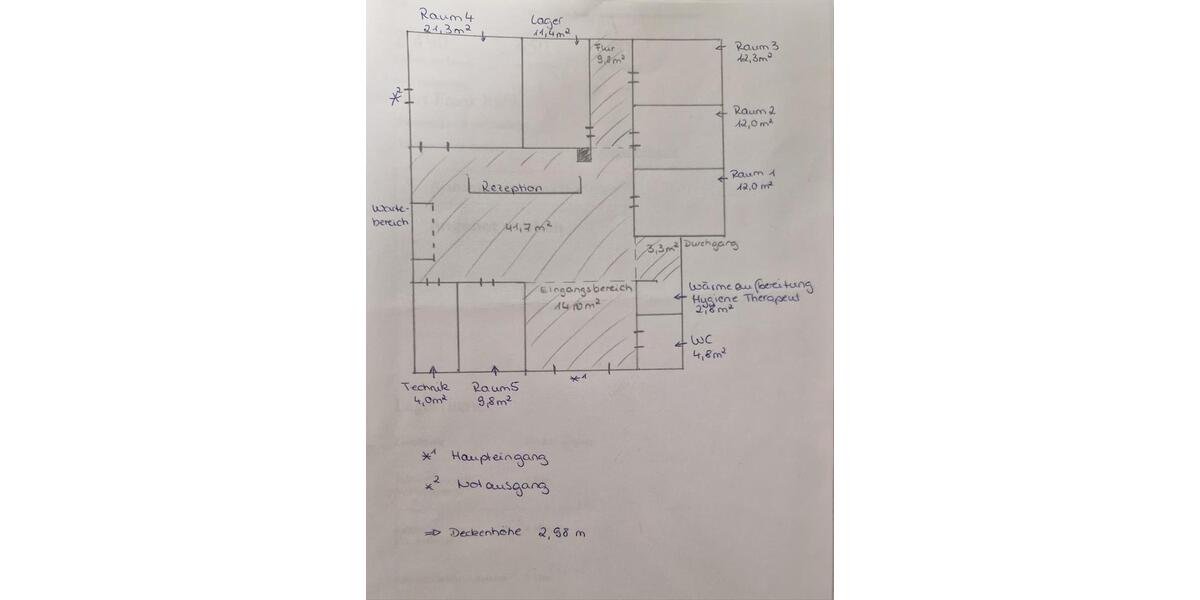 Raum 4
21,3m²
Lager
11,4m²
Flur
9,8m²
Raum 3
12,3m²
*²
Raum 2
12,0m²
Raum 1
12,0 m²
Rezeption
Warte-
bereich
41,7 m²
3,3m² Durchgang
Eingangsbereich
m²
Wärmeaufbereitung
Hygiene Therapeut
2,8m²
WC
4,8m²
Technik
4,0m²
Raum5
9,8m²
*1
*1 Haupteingang
*2 Notausgang
⇒ Deckenhöhe 2,98 m